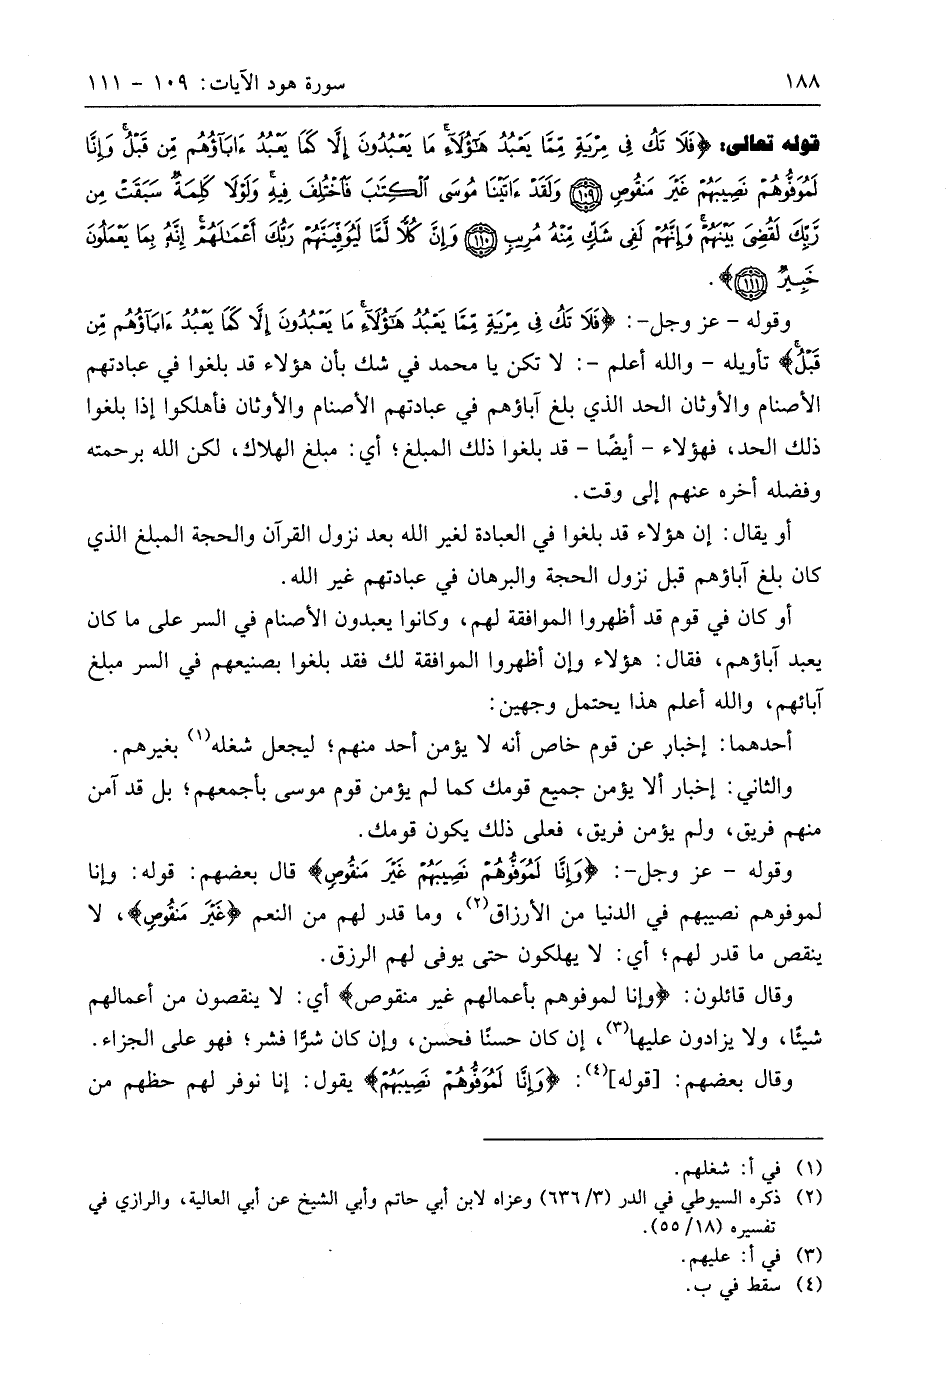 ١٨٨ سورة هود الآيات: ١٠٩ - ١١١
قوله تعالى: ﴿فَلَا تَكُ فِى مِرْيَةٍ مِّمَّا يَعْبُدُ هَٰٓؤُلَآءِ ۚ مَا يَعْبُدُونَ إِلَّا كَمَا يَعْبُدُ ءَابَآؤُهُم مِّن قَبْلُ ۚ وَإِنَّا
لَمُوَفُّوهُمْ نَصِيبَهُمْ غَيْرَ مَنقُوصٍ ﴿١٠٩﴾ وَلَقَدْ ءَاتَيْنَا مُوسَى ٱلْكِتَٰبَ فَٱخْتُلِفَ فِيهِ ۚ وَلَوْلَا كَلِمَةٌ سَبَقَتْ مِن
رَّبِّكَ لَقُضِىَ بَيْنَهُمْ ۚ وَإِنَّهُمْ لَفِى شَكٍّ مِّنْهُ مُرِيبٍ ﴿١١٠﴾ وَإِنَّ كُلًّا لَّمَّا لَيُوَفِّيَنَّهُمْ رَبُّكَ أَعْمَٰلَهُمْ ۚ إِنَّهُۥ بِمَا يَعْمَلُونَ
خَبِيرٌ ﴿١١١﴾﴾.
وقوله - عز وجل-: ﴿فَلَا تَكُ فِى مِرْيَةٍ مِّمَّا يَعْبُدُ هَٰٓؤُلَآءِ ۚ مَا يَعْبُدُونَ إِلَّا كَمَا يَعْبُدُ ءَابَآؤُهُم مِّن
قَبْلُ ۚ﴾ تأويله - والله أعلم -: لا تكن يا محمد في شك بأن هؤلاء قد بلغوا في عبادتهم
الأصنام والأوثان الحد الذي بلغ آباؤهم في عبادتهم الأصنام والأوثان فأهلكوا إذا بلغوا
ذلك الحد، فهؤلاء - أيضًا - قد بلغوا ذلك المبلغ؛ أي: مبلغ الهلاك، لكن الله برحمته
وفضله أخره عنهم إلى وقت.
أو يقال: إن هؤلاء قد بلغوا في العبادة لغير الله بعد نزول القرآن والحجة المبلغ الذي
كان بلغ آباؤهم قبل نزول الحجة والبرهان في عبادتهم غير الله.
أو كان في قوم قد أظهروا الموافقة لهم، وكانوا يعبدون الأصنام في السر على ما كان
يعبد آباؤهم، فقال: هؤلاء وإن أظهروا الموافقة لك فقد بلغوا بصنيعهم في السر مبلغ
آبائهم، والله أعلم هذا يحتمل وجهين:
أحدهما: إخبار عن قوم خاص أنه لا يؤمن أحد منهم؛ ليجعل شغله(١) بغيرهم.
والثاني: إخبار ألا يؤمن جميع قومك كما لم يؤمن قوم موسى بأجمعهم؛ بل قد آمن
منهم فريق، ولم يؤمن فريق، فعلى ذلك يكون قومك.
وقوله - عز وجل-: ﴿وَإِنَّا لَمُوَفُّوهُمْ نَصِيبَهُمْ غَيْرَ مَنقُوصٍ﴾ قال بعضهم: قوله: وإنا
لموفوهم نصيبهم في الدنيا من الأرزاق(٢)، وما قدر لهم من النعم ﴿غَيْرَ مَنقُوصٍ﴾، لا
ينقص ما قدر لهم؛ أي: لا يهلكون حتى يوفى لهم الرزق.
وقال قائلون: ﴿وإنا لموفوهم بأعمالهم غير منقوص﴾ أي: لا ينقصون من أعمالهم
شيئًا، ولا يزادون عليها(٣)، إن كان حسنًا فحسن، وإن كان شرًّا فشر؛ فهو على الجزاء.
وقال بعضهم: [قوله](٤): ﴿وَإِنَّا لَمُوَفُّوهُمْ نَصِيبَهُمْ﴾ يقول: إنا نوفر لهم حظهم من
(١) في أ: شغلهم.
(٢) ذكره السيوطي في الدر (٣/ ٦٣٦) وعزاه لابن أبي حاتم وأبي الشيخ عن أبي العالية، والرازي في
تفسيره (١٨/ ٥٥).
(٣) في أ: عليهم.
(٤) سقط في ب.